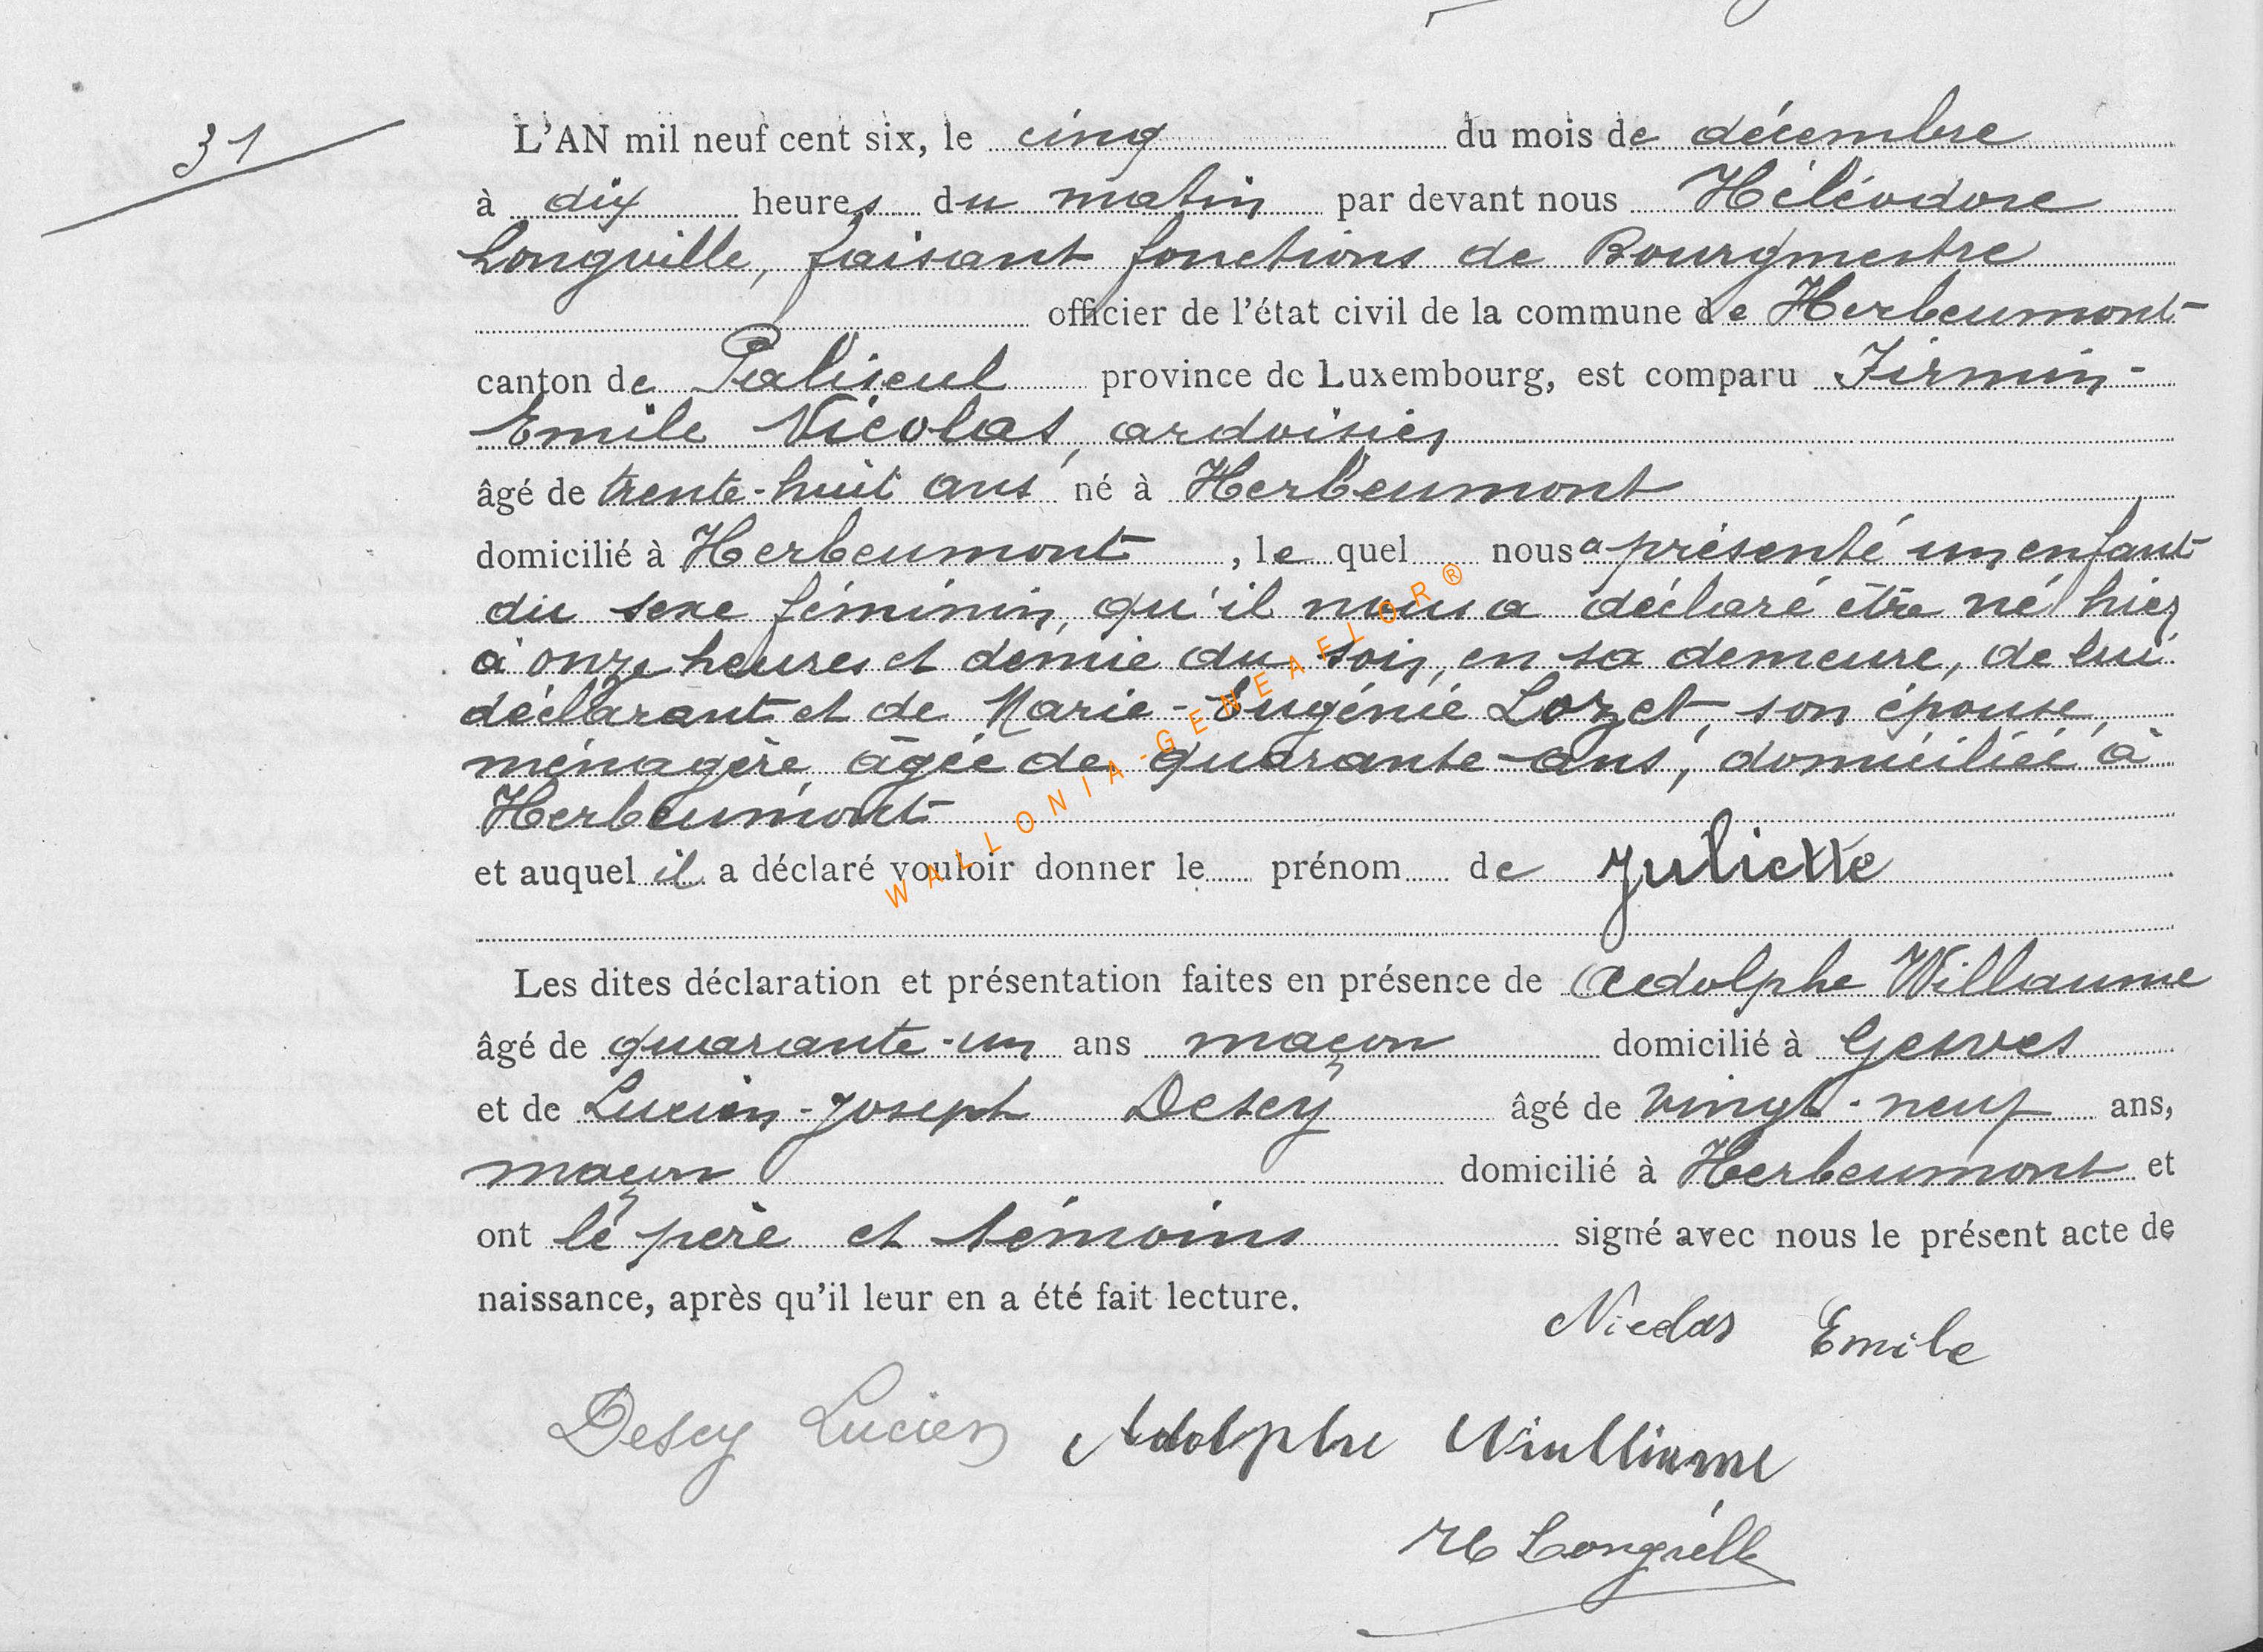 31
L'AN mil neuf cent six, le cinq du mois de décembre
à dix heures du matin par devant nous Héléodore
Longville, faisant fonctions de Bourgmestre
officier de l'état civil de la commune de Herbeumont
canton de Paliseul province de Luxembourg, est comparu Firmin-
Emile Nicolas, ardoisier
âgé de trente-huit ans né à Herbeumont
domicilié à Herbeumont, le quel nous a présenté un enfant
du sexe féminin, qu'il nous a déclaré être né hier
à onze heures et demie du soir, en sa demeure, de lui
déclarant et de Marie-Eugénie Lozet, son épouse,
ménagère, âgée de quarante-ans, domiciliée à
Herbeumont
et auquel il a déclaré vouloir donner le prénom de Juliette
WALLONIA-GENEAELOR®
Les dites déclaration et présentation faites en présence de Adolphe Willaume
âgé de quarante-un ans maçon domicilié à Gesves
et de Lucien-Joseph Desey âgé de vingt-neuf ans,
maçon domicilié à Herbeumont et
ont le père et témoins signé avec nous le présent acte de
naissance, après qu'il leur en a été fait lecture.
Nicolas Emile
Desey Lucien Adolphe
H Longville